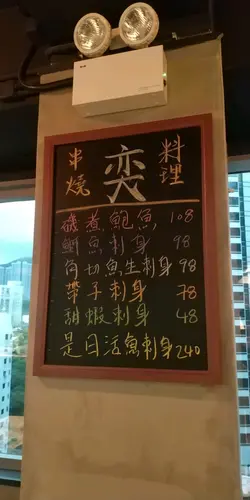 串燒 奕 料理
磯煮鮑魚 108
鰤魚刺身 98
角切魚生刺身 98
帶子刺身 78
甜蝦刺身 48
是日活魚刺身 240